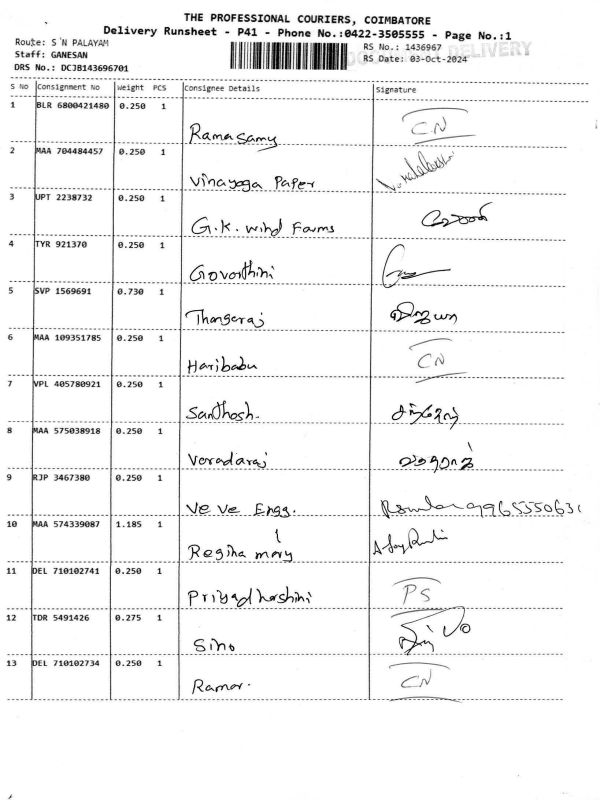 THE PROFESSIONAL COURIERS, COIMBATORE
Delivery Runsheet - P41 - Phone No.:0422-3505555 - Page No.:1
Route: S N PALAYAM RS No.: 1436967 DELIVERY
Staff: GANESAN RS Date: 03-Oct-2024
DRS No.: DCJB143696701
S No Consignment No Weight PCS Consignee Details Signature
1 BLR 6800421480 0.250 1
Ramasamy CN
2 MAA 704484457 0.250 1
Vinayaga Paper
3 UPT 2238732 0.250 1
G.K. Wind Farms
4 TYR 921370 0.250 1
Govarthini
5 SVP 1569691 0.730 1
Thangaraj விஜயா
6 MAA 109351785 0.250 1
Haribabu CN
7 VPL 405780921 0.250 1
Santhosh. சந்தோஷ்
8 MAA 575038918 0.250 1
Varadaraj வரதராஜ்
9 RJP 3467380 0.250 1
Ve Ve Engg. 9965550631
10 MAA 574339087 1.185 1
Regina mary
11 DEL 710102741 0.250 1
Priyadharshini PS
12 TDR 5491426 0.275 1
Sino
13 DEL 710102734 0.250 1
Ramar. CN